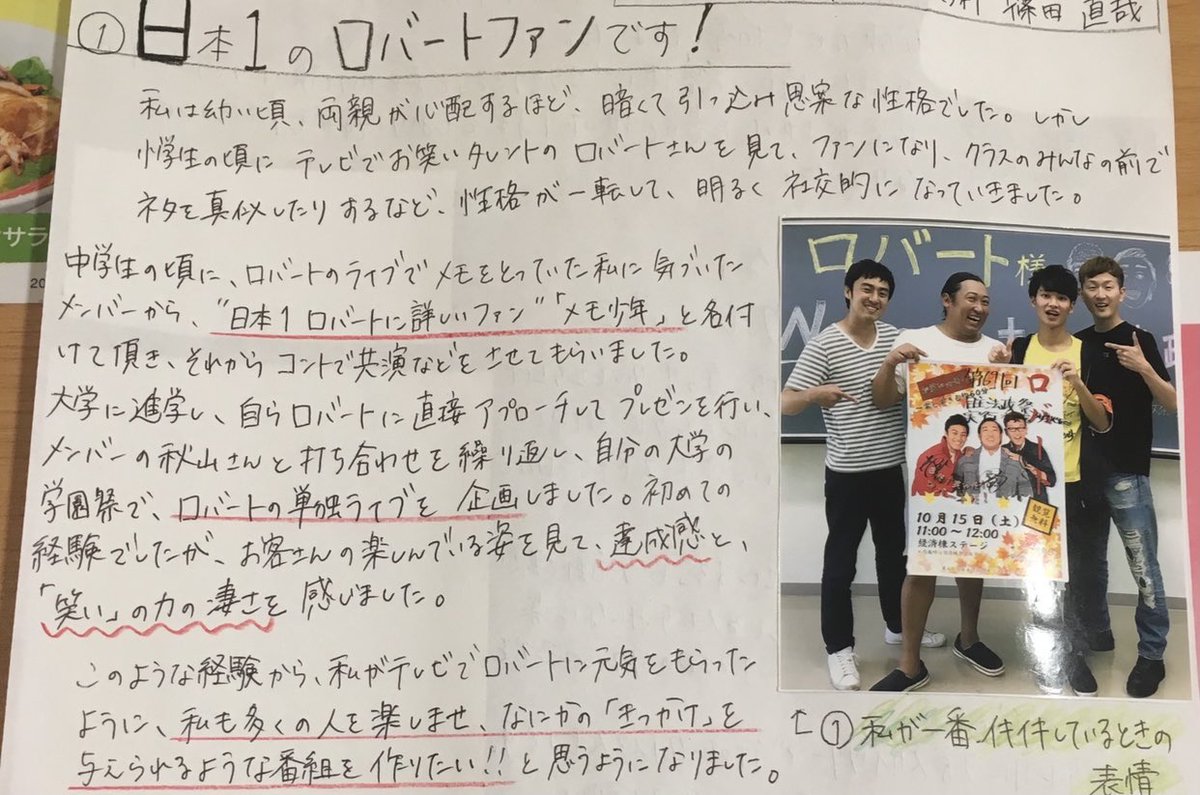 篠田 直哉
① 日本1のロバートファンです！
私は幼い頃、両親が心配するほど、暗くて引っ込み思案な性格でした。しかし
小学生の頃にテレビでお笑いタレントのロバートさんを見て、ファンになり、クラスのみんなの前で
ネタを真似したりするなど、性格が一転して、明るく社交的になっていきました。
中学生の頃に、ロバートのライブでメモをとっていた私に気づいた
メンバーから、"日本1ロバートに詳しいファン"「メモ少年」と名付
けて頂き、それからコントで共演などをさせてもらいました。
大学に進学し、自らロバートに直接アプローチしてプレゼンを行い、
メンバーの秋山さんと打ち合わせを繰り返し、自分の大学の
学園祭で、ロバートの単独ライブを企画しました。初めての
経験でしたが、お客さんの楽しんでいる姿を見て、達成感と、
「笑い」の力の凄さを感じました。
このような経験から、私がテレビでロバートに元気をもらった
ように、私も多くの人を楽しませ、なにかの「きっかけ」を
与えられるような番組を作りたい!!と思うようになりました。
ロバート様
第69回
10月15日(土)
11:00〜12:00
経済棟ステージ
観覧無料
↑①私が一番イキイキしているときの
表情
サラ
20